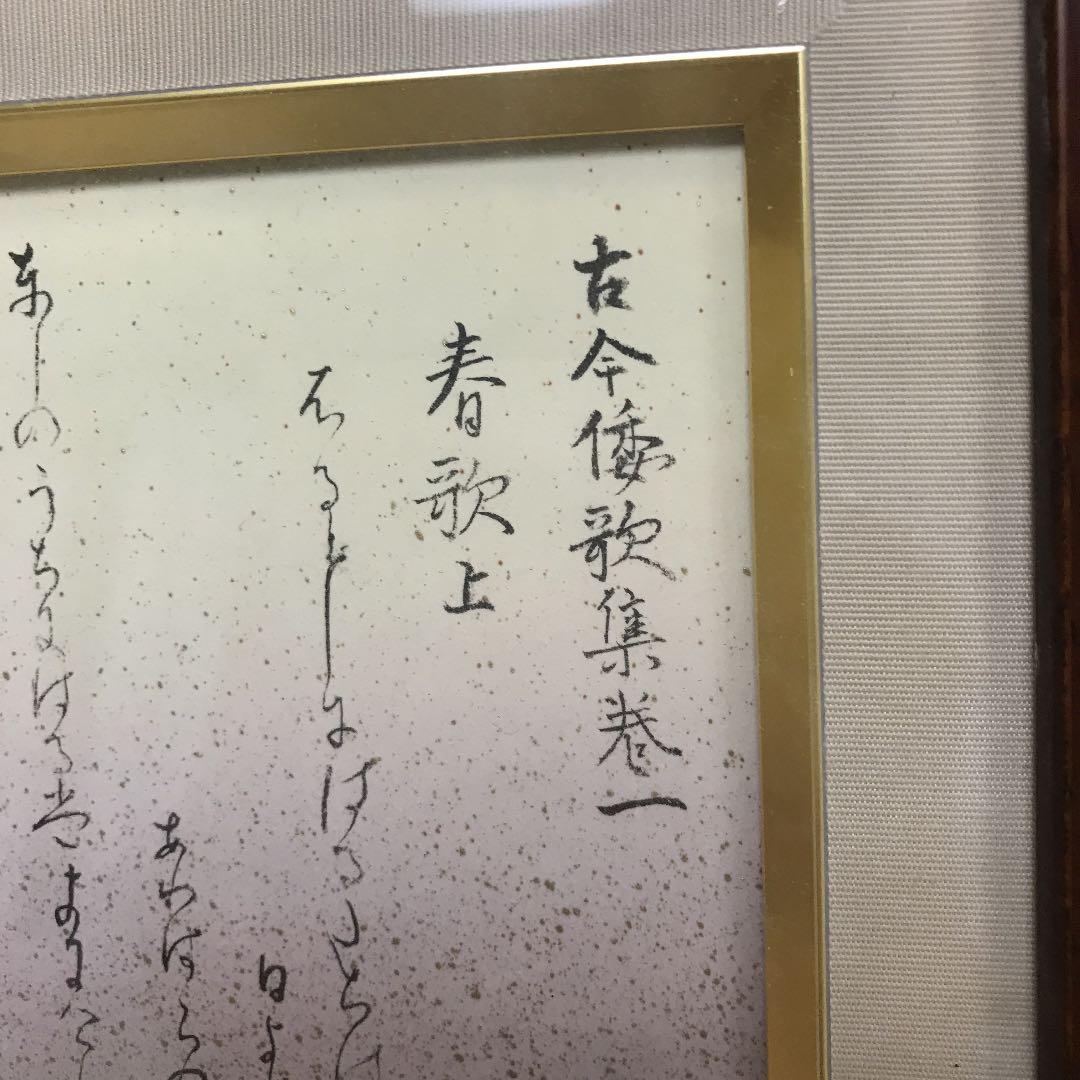 古今倭歌集巻一
春歌上
ふるとしにはるたちけ
日よ
ありはらの
としのうちにはるはきにけ